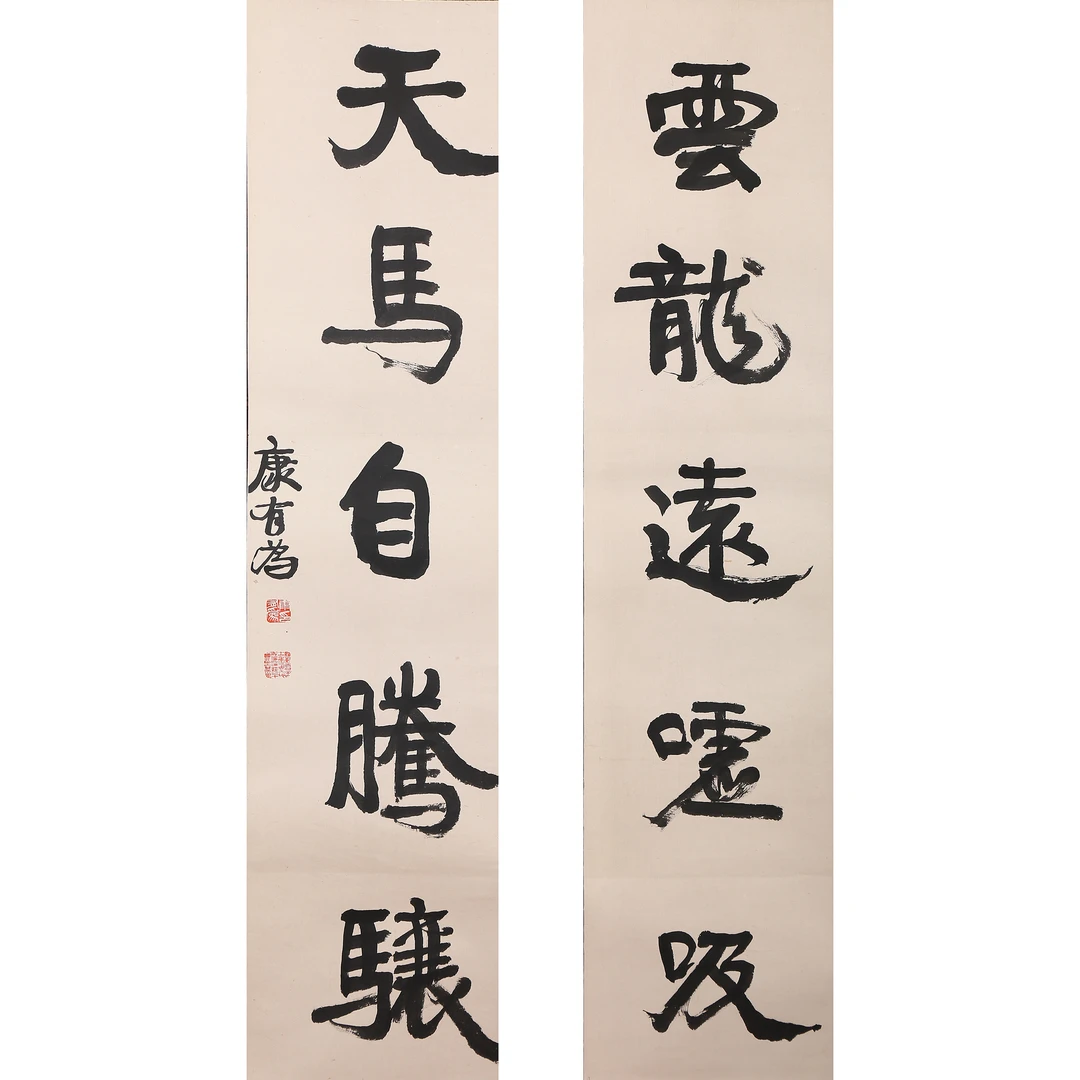 雲龍遠嘘吸
天馬自騰驤
康有為